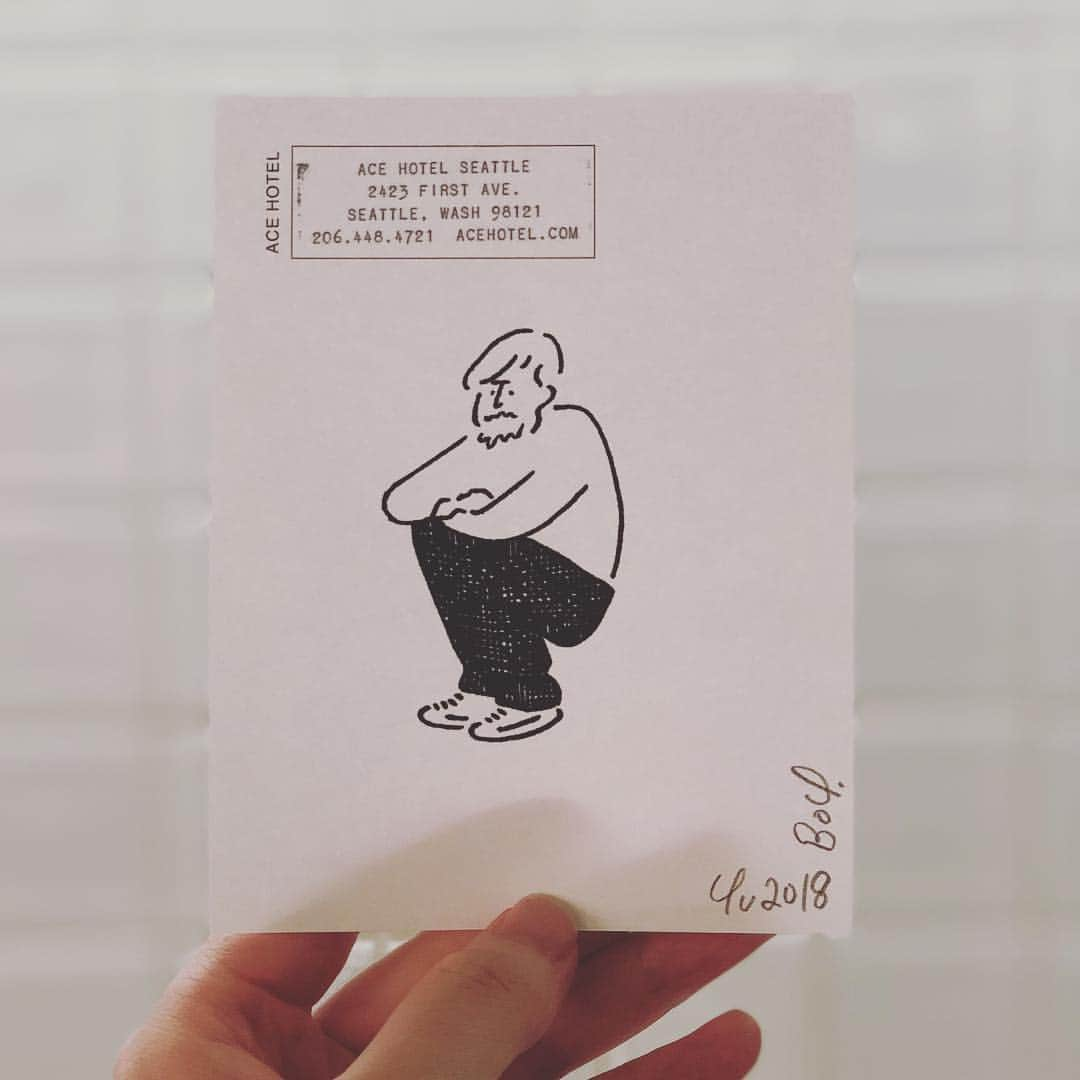 ACE HOTEL
ACE HOTEL SEATTLE
2423 FIRST AVE.
SEATTLE, WASH 98121
206.448.4721 ACEHOTEL.COM
2018